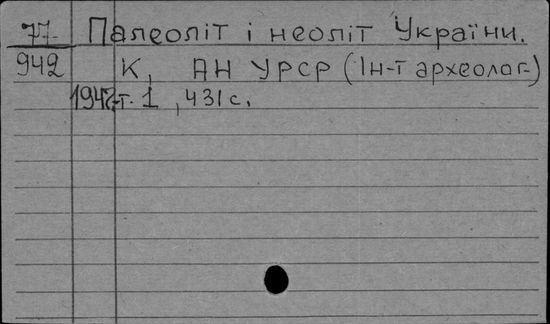 77 Палеоліт і неоліт України.
942 К, АН УРСР (Ін-т археолог-)
1947, т. 1, 431 с.